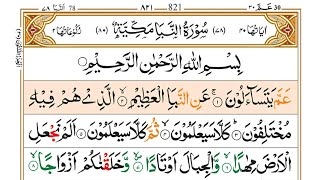 عَمَّ ٣٠ 821 ٨٢١ اَلنَّبَاِ ٧٨
اٰيَاتُهَا ٤٠ (٧٨) سُوْرَةُ النَّبَاِ مَكِّيَّةٌ (٨٠) رُكُوْعَاتُهَا ٢
بِسْمِ اللّٰهِ الرَّحْمٰنِ الرَّحِيْمِ
عَمَّ يَتَسَآءَلُوْنَ ۚ‏ ١ عَنِ النَّبَاِ الْعَظِيْمِۙ‏ ٢ الَّذِىْ هُمْ فِيْهِ
مُخْتَلِفُوْنَؕ‏ ٣ كَلَّا سَيَعْلَمُوْنَۙ‏ ٤ ثُمَّ كَلَّا سَيَعْلَمُوْنَ‏ ٥ اَلَمْ نَجْعَلِ
الْاَرْضَ مِهٰدًاۙ‏ ٦ وَّالْجِبَالَ اَوْتَادًاۙ‏ ٧ وَّخَلَقْنٰكُمْ اَزْوَاجًاۙ‏ ٨